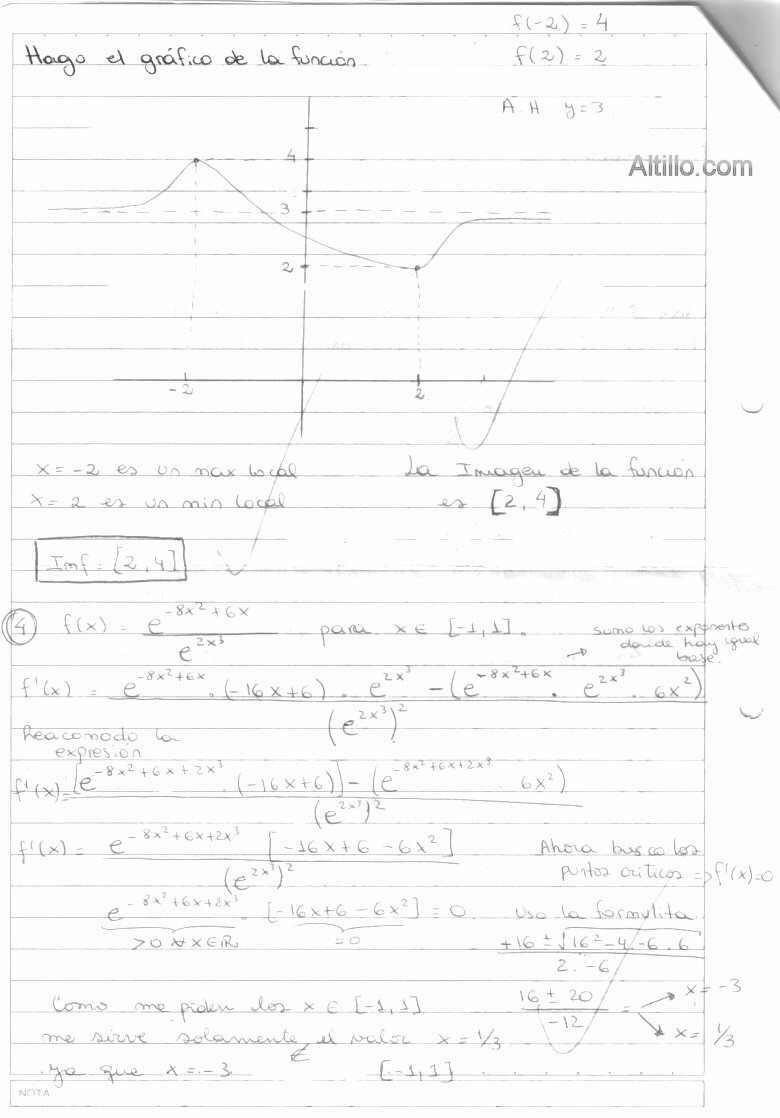 f(-2) = 4
Hago el gráfico de la función.
f(2) = 2
A H y=3
Altillo.com
4
3
2
-2
2
x = -2 es un max local
La Imagen de la función
x = 2 es un min local
es [2, 4]
Imf = [2, 4]
4 f(x) = e^{-8x²+6x} / e^{2x³} para x ∈ [-1, 1].
sumo los exponentes
donde hay igual
base.
f'(x) = e^{-8x²+6x} · (-16x+6) · e^{2x³} - (e^{-8x²+6x} · e^{2x³} · 6x²) / (e^{2x³})²
Reacomodo la
expresión
f'(x) = [e^{-8x²+6x+2x³} · (-16x+6)] - (e^{-8x²+6x+2x³} 6x²) / (e^{2x³})²
f'(x) = e^{-8x²+6x+2x³} [-16x+6-6x²] / (e^{2x³})²
Ahora busco los
puntos críticos ⇒ f'(x)=0
e^{-8x²+6x+2x³} · [-16x+6-6x²] = 0.
uso la formulita
>0 ∀x∈ℝ
=0
+16 ± √(16² - 4 · -6 · 6) / 2 · -6
Como me piden los x ∈ [-1, 1]
16 ± 20 / -12 =
x = -3
x = 1/3
me sirve solamente el valor x = 1/3
ya que x = -3 ∉ [-1, 1]
NOTA